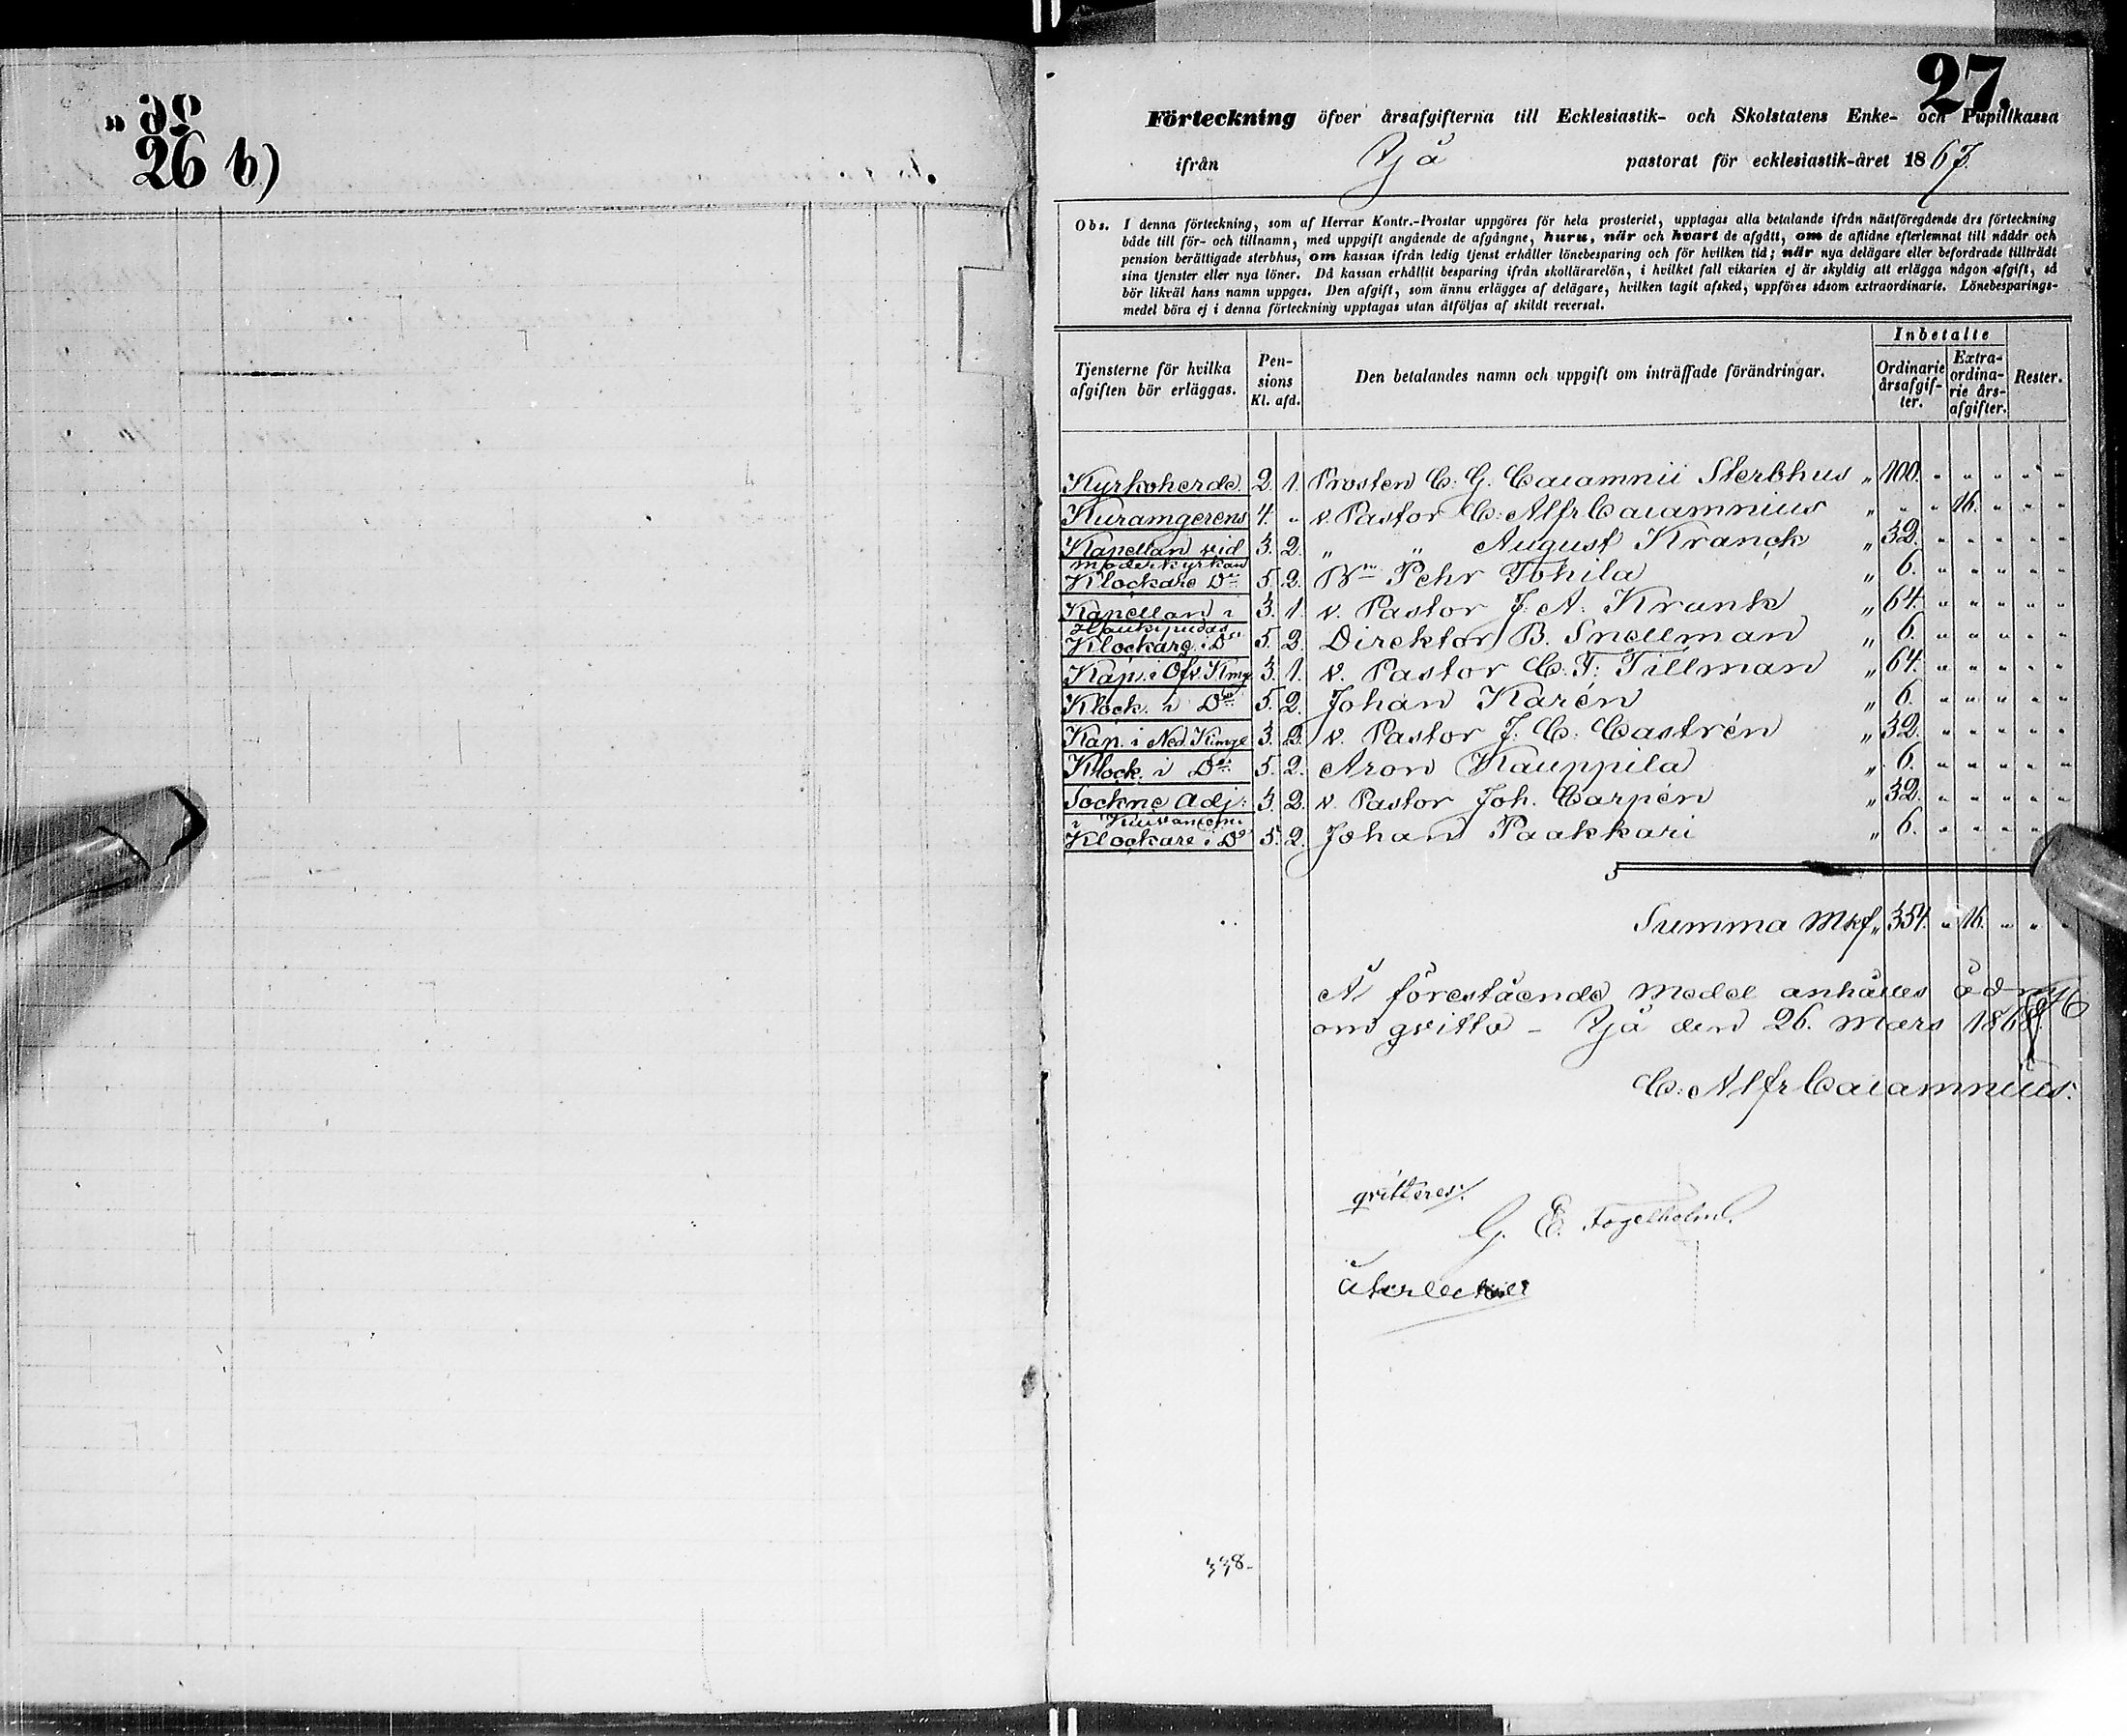 26 b)
27.
Förteckning öfver årsafgifterna till Ecklesiastik- och Skolstatens Enke- och Pupillkassa
ifrån Ijå pastorat för ecklesiastik-året 1867.
Obs. I denna förteckning, som af Herrar Kontr.-Prostar uppgöres för hela prosteriet, upptagas alla betalande ifrån nästföregående års förteckning
både till för- och tillnamn, med uppgift angående de afgångne, huru, när och hvart de afgått, om de aflidne efterlemnat till nådår och
pension berättigade sterbhus, om kassan ifrån ledig tjenst erhåller lönebesparing och för hvilken tid; när nya delägare eller befordrade tillträdt
sina tjenster eller nya löner. Då kassan erhållit besparing ifrån skollärarelön, i hvilket fall vikarien ej är skyldig att erlägga någon afgift, så
bör likväl hans namn uppges. Den afgift, som ännu erlägges af delägare, hvilken tagit afsked, uppföres såsom extraordinarie. Lönebesparings-
medel böra ej i denna förteckning upptagas utan åtföljas af skildt reversal.
Tjensterne för hvilka afgiften bör erläggas. Pensions Kl. afd. Den betalandes namn och uppgift om inträffade förändringar. Inbetalte Ordinarie årsafgifter. Extraordinarie årsafgifter. Rester.
Kyrkoherde. 2. 1. Prosten C. G. Caiamnii Sterbhus " 100. " " " " "
Kuramgerens 4. " v. Pastor C. Alfr Caiamnius " " " 16. " " "
Kapellan vid moderkyrkan 3. 2. " " August Kranck " 32. " " " " "
Klockare Do 5. 2. Bn Pehr Tohila " 6. " " " " "
Kapellan i Haukipudas 3. 1. v. Pastor J. A. Krank " 64. " " " " "
Klockare i Do 5. 2. Direktor B. Snellman " 6. " " " " "
Kap. i Öfv. Kmg 3. 1. v. Pastor C. F. Tillman " 64. " " " " "
Klock. i Do 5. 2. Johan Karén " 6. " " " " "
Kap. i Ned. Kimge 3. 2. v. Pastor J. C. Castrén " 32. " " " " "
Klock. i Do 5. 2. Aron Kauppila " 6. " " " " "
Sockne Adj: i Kuivaniemi 3. 2. v. Pastor Joh. Carpén " 32. " " " " "
Klockare i Do 5. 2. Johan Paakkari " 6. " " " "
Summa Mkf " 354. " 16. " " "
Å förestående medel anhålles ödmjc
om qvitto - Ijå den 26. Mars 1868.
C. Alfr Caiamnius.
qvitteres.
G. E. Fogelholm.
338-